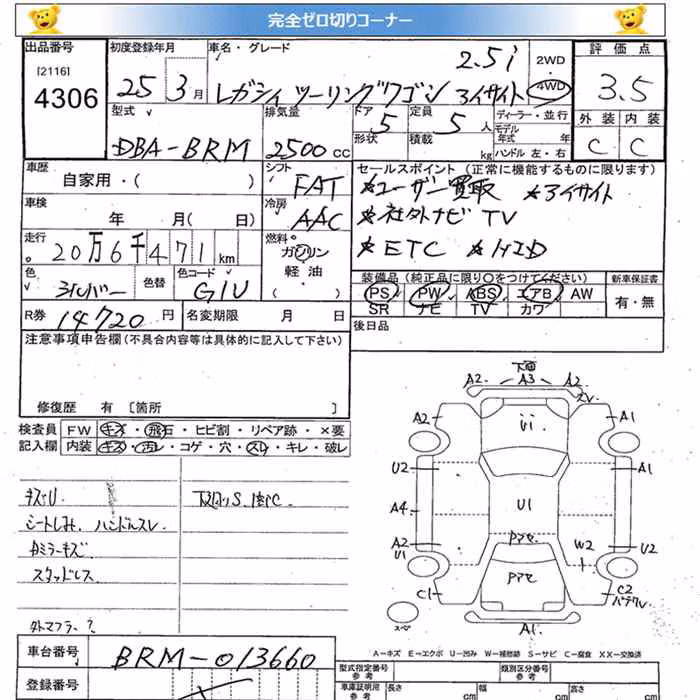 完全ゼロ切りコーナー
出品番号 初度登録年月 車名・グレード 2.5i 2WD 評価点
[2116] 4306 25年 3月 レガシィ ツーリングワゴン アイサイト 4WD 3.5
型式 排気量 ドア 5 定員 5人 ディーラー・並行 外装 内装
DBA-BRM 2500cc 形状 積載 kg モデル年式 年 ハンドル 左・右 C C
車歴 シフト セールスポイント (正常に機能するものに限ります)
自家用・( ) FAT ★ユーザー買取 ★アイサイト
車検 冷房 ★社外ナビ TV
年 月(日) AAC ★ETC ★HID
走行 20万6千471km 燃料 ガソリン
軽油・( )
色 シルバー 色替 色コード G1U
装備品 (純正品に限り○をつけてください) 新車保証書
PS PW ABS エアB AW 有・無
SR ナビ TV カワ
R券 14720円 名変期限 月 日 後日品
注意事項申告欄(不具合内容等は具体的に記入して下さい)
修復歴 有 [箇所 ]
検査員 FW キズ・飛石・ヒビ割・リペア跡・×要
記入欄 内装 キズ・汚レ・コゲ・穴・スレ・キレ・破レ
キズU 下廻りS、腐C
シートしみ、ハンドルスレ
Aミラーキズ
スタッドレス
外マフラー?
下面
A2 A3 A2
A2 U1 A1
U2 A1
A4 U1
A2 U1 W2 U2
C1 C2
スペア A1
A-キズ E-エクボ U-凹み W-補修跡 S-サビ C-腐食 XX-交換済
車台番号 BRM-013660
登録番号
型式指定番号 類別区分番号
参考 参考
車庫証明用 長さ 幅 高さ
参考 cm cm cm